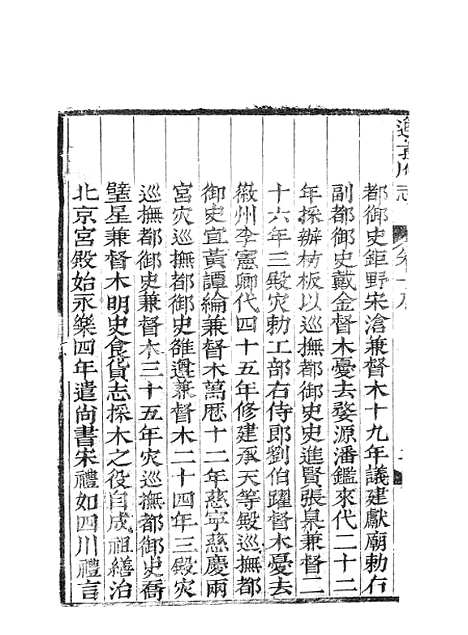 都御史鉅野宋滄兼督木十九年議建獻廟勅右
副都御史戴金督木憂去婺源潘鑑來代二十二
年採辦枋板以巡撫都御史史進賢張臬兼督二
十六年三殿灾勅工部右侍郎劉伯躍督木憂去
徽州李憲卿代四十五年修建承天等殿巡撫都
御史宜黃譚綸兼督木萬厯十二年慈寧慈慶兩
宮灾巡撫都御史雒遵兼督木二十四年三殿灾
巡撫都御史兼督木三十五年灾巡撫都御史喬
璧星兼督木明史食貨志採木之役自成祖繕治
北京宮殿始永樂四年遣尚書宋禮如四川禮言